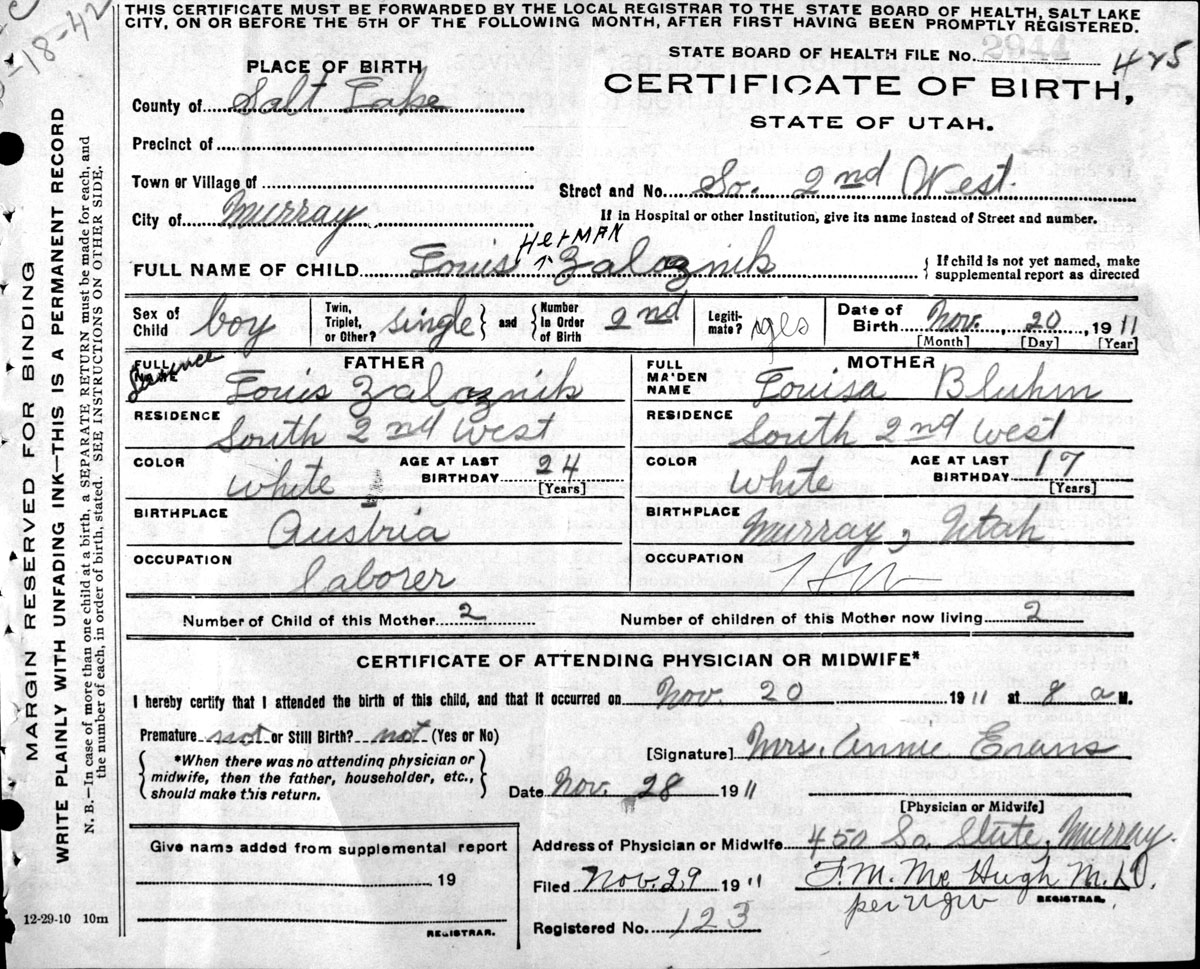 THIS CERTIFICATE MUST BE FORWARDED BY THE LOCAL REGISTRAR TO THE STATE BOARD OF HEALTH, SALT LAKE
CITY, ON OR BEFORE THE 5TH OF THE FOLLOWING MONTH, AFTER FIRST HAVING BEEN PROMPTLY REGISTERED.
-18-42
STATE BOARD OF HEALTH FILE No. 2944 425
PLACE OF BIRTH
CERTIFICATE OF BIRTH,
STATE OF UTAH.
County of Salt Lake
Precinct of
Town or Village of
Street and No. So. 2nd West.
City of Murray
If in Hospital or other Institution, give its name instead of Street and number.
FULL NAME OF CHILD Louis Herman Zaloznik
{ If child is not yet named, make
supplemental report as directed
Sex of Child boy
Twin, Triplet, or Other? single } and { Number in Order of Birth 2nd
Legitimate? yes
Date of Birth Nov. 20, 1911
[Month] [Day] [Year]
FATHER
FULL NAME Louis Zaloznik
MOTHER
FULL MAIDEN NAME Louisa Bluhm
RESIDENCE South 2nd West
RESIDENCE South 2nd West
COLOR white AGE AT LAST BIRTHDAY 24 [Years]
COLOR white AGE AT LAST BIRTHDAY 17 [Years]
BIRTHPLACE Austria
BIRTHPLACE Murray, Utah
OCCUPATION laborer
OCCUPATION HW
Number of Child of this Mother 2
Number of children of this Mother now living 2
CERTIFICATE OF ATTENDING PHYSICIAN OR MIDWIFE*
I hereby certify that I attended the birth of this child, and that it occurred on Nov. 20 1911 at 8 a M.
Premature not or Still Birth? not (Yes or No)
[Signature] Mrs. Annie Evans
{ *When there was no attending physician or
midwife, then the father, householder, etc.,
should make this return. }
Date Nov. 28 1911
[Physician or Midwife]
Give name added from supplemental report
19
REGISTRAR.
Address of Physician or Midwife 450 So. State, Murray.
Filed Nov. 29 1911 F. M. McHugh M.D.
REGISTRAR.
per
Registered No. 123
12-29-10 10m
MARGIN RESERVED FOR BINDING
WRITE PLAINLY WITH UNFADING INK—THIS IS A PERMANENT RECORD
N. B.—In case of more than one child at a birth, a SEPARATE RETURN must be made for each, and
the number of each, in order of birth, stated. SEE INSTRUCTIONS ON OTHER SIDE.